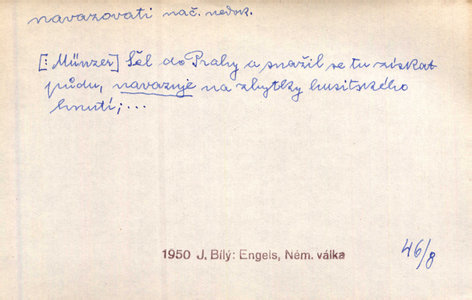 navazovati nač. nedok.
[: Münzer] Šel do Prahy a snažil se tu získat
půdu, navazuje na zbytky husitského
hnutí; ...
1950 J. Bílý: Engels, Něm. válka
46/8